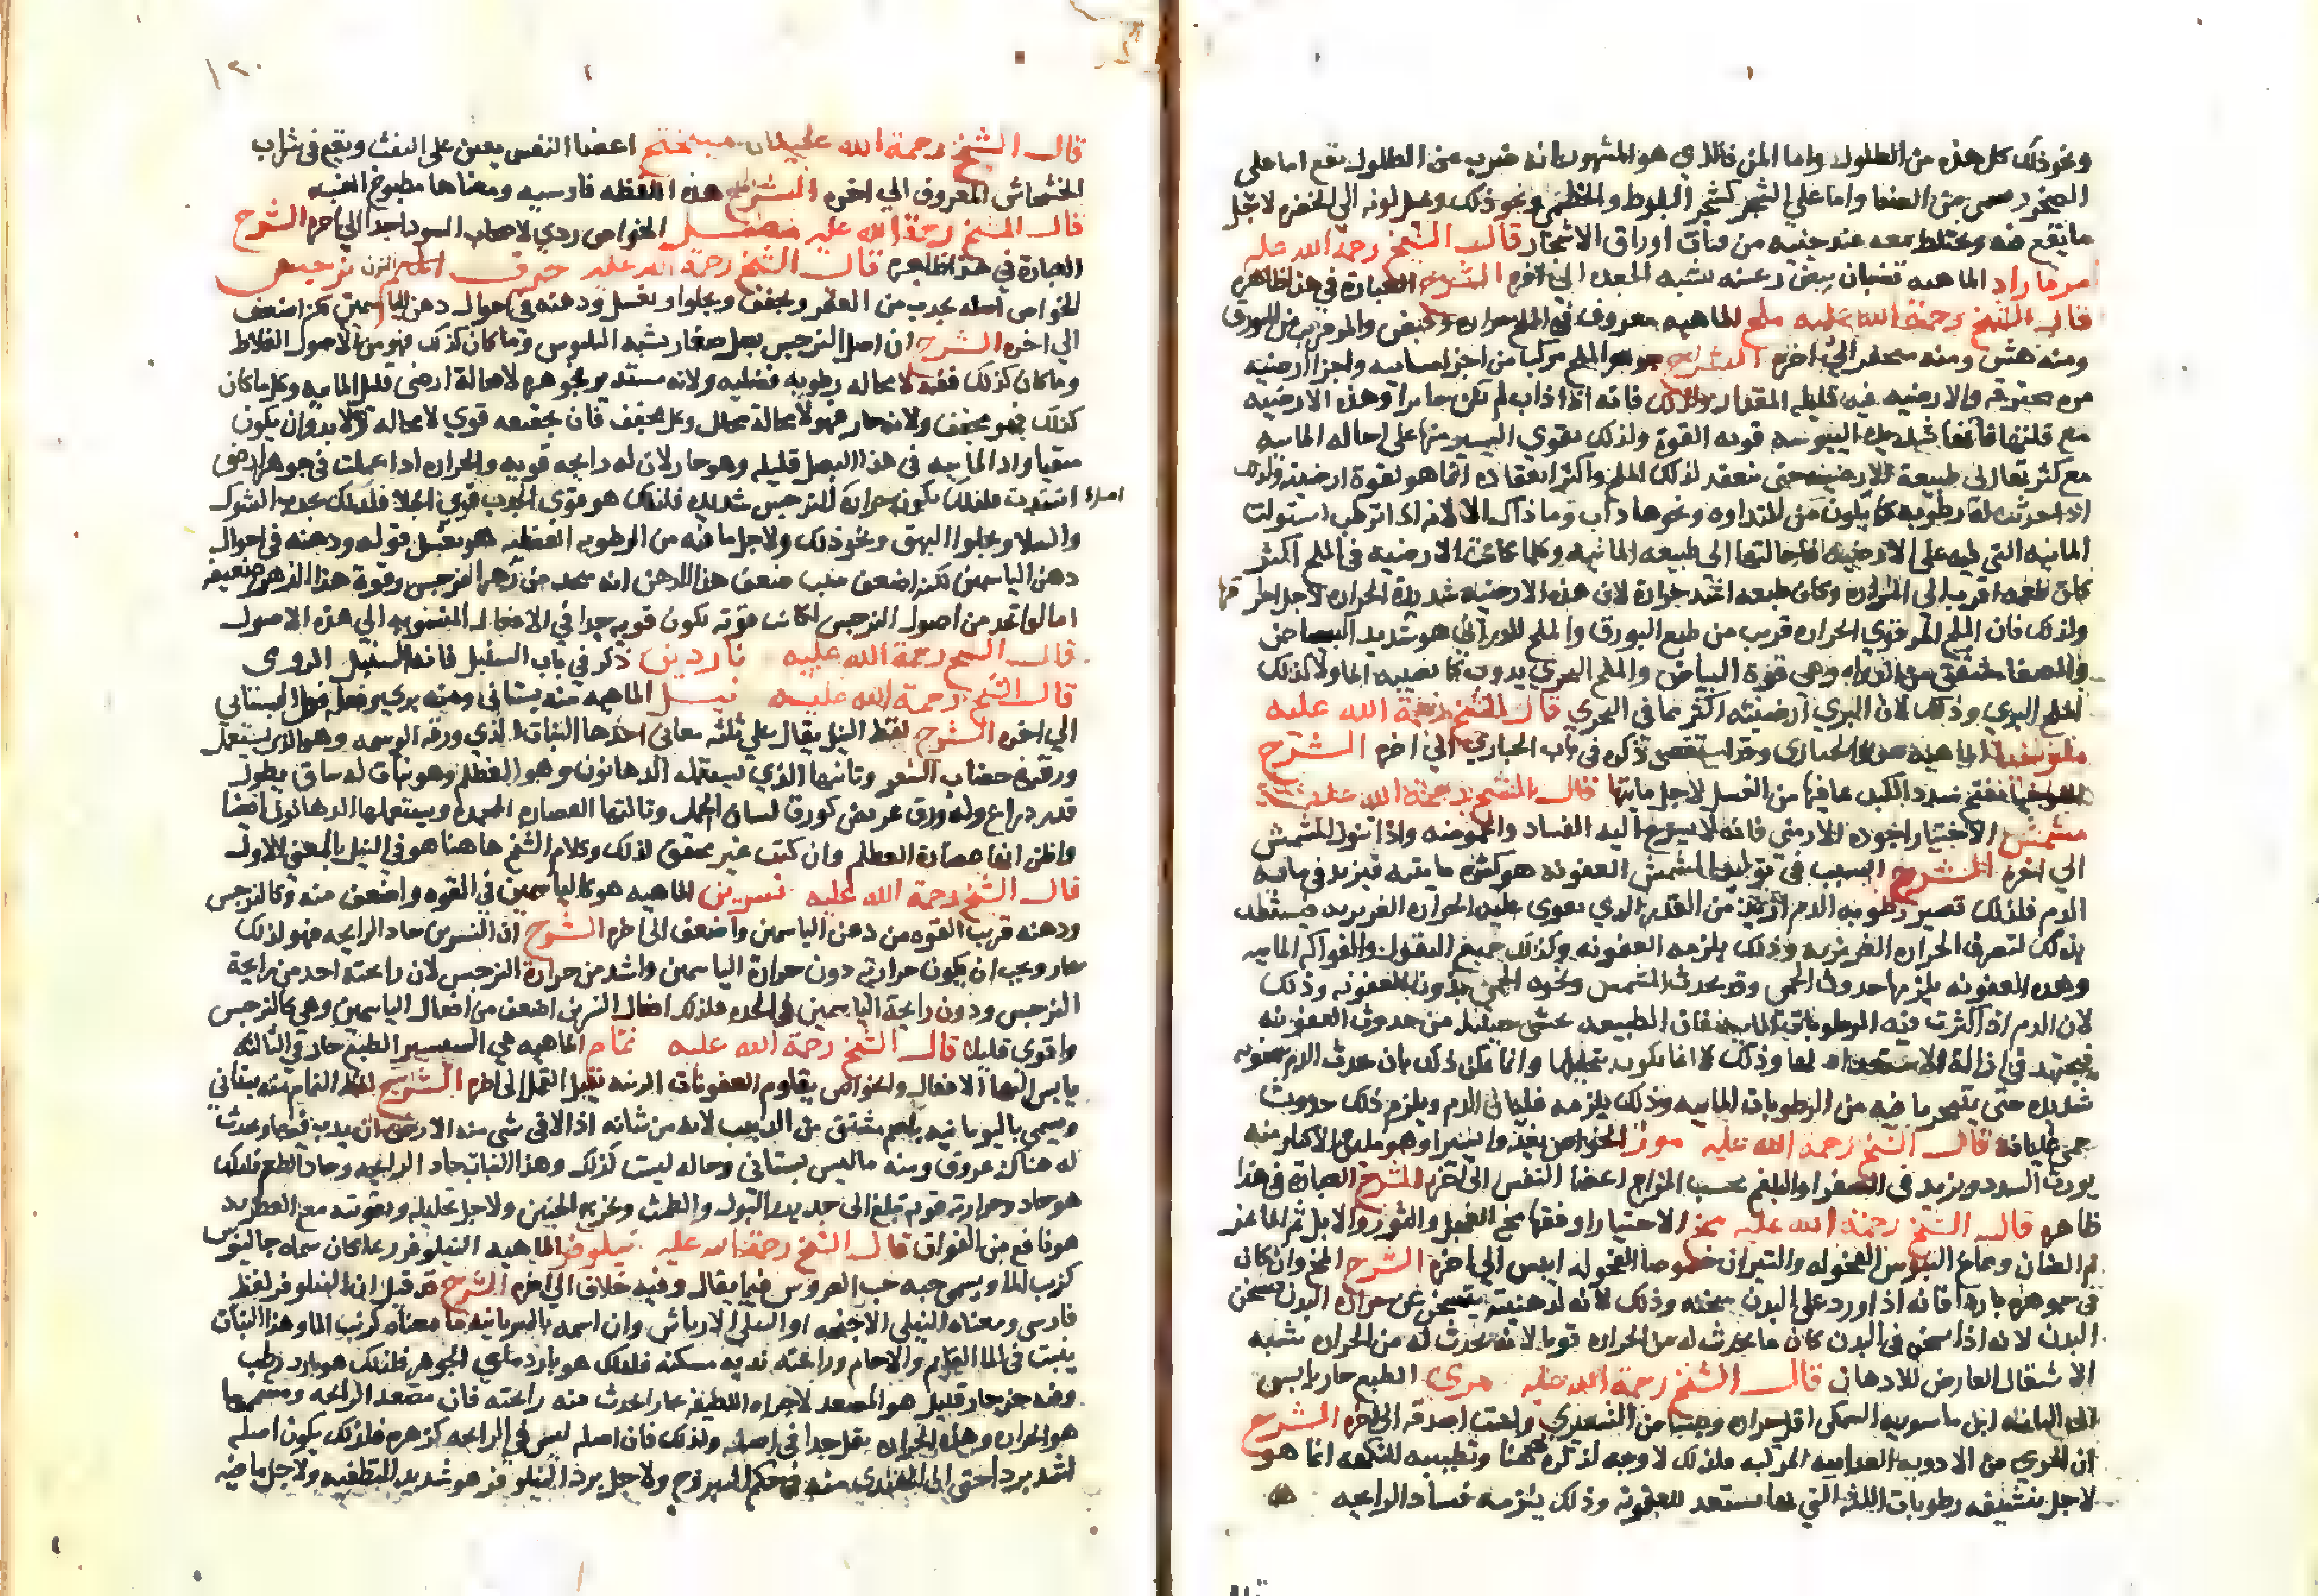 ونحو ذلك كل هذه من الطلول واما المن فالذي هو المشهور انه ضرب من الطلول يقع اما على
الصخر واما على الشجر كشجر البلوط والخطمي ونحو ذلك ويميل لونه الى الخضرة لاجل
ما يقع فيه ويختلط معه عند جنيه من فتات اوراق الاشجار قال الشيخ رحمة الله عليه
الماهيه قضبان بيض شبه الجعده الى اخره الشرح العبارة في هذا ظاهره
قال الشيخ رحمة الله عليه ملح الماهيه معروف في الملح مرارة وقبض والمر قريب من البورق
ومنه هش ومنه محتفر الى اخره الشرح جوهر الملح مركبا من اجزا مائيه واجزا ارضيه
مره محترقه والارضيه فيه قليله المقدار ولذلك فانه اذا ذاب لم يكن خاثرا وهذه الارضيه
مع قلتها فانها شديدة اليبوسه قويه القوة ولذلك يقوي اليسير منها على احاله المائيه
مع كثرتها الى طبيعة الارضيه حتى ينعقد لذلك الملح واكثر انعقاده انما هو لقوة ارضيته ولذلك
اذا حدثت له رطوبه كما يكون من النداوه ونحوها ذاب وما ذاك الا لانه اذا ترطب استولت
المائيه التي فيه على الارضيه فاحالتها الى طبيعه المائيه وكلما كانت الارضيه في الملح اكثر
كان طعمه اقرب الى المراره وكان طبعه اشد حرارة لان هذه الارضيه شديدة الحراره لاجل احتراقها
ولذلك فان الملح المر قوي الحراره قريب من طبع البورق والملح الدراني هو شديد البياض
والصفا وهي قوة البياض والملح البحري يذوب كما يصيبه الما ولا كذلك
الملح البري وذلك لان البري ارضيته اكثر مما في البحري قال الشيخ رحمة الله عليه
ملوخيا الماهيه هو الخبازى وقد استقصى ذكره في باب الخبازي الى اخره الشرح
الملوخيا تفتح سدد الكبد لما فيها من الغسل لاجل مائيتها قال الشيخ رحمة الله عليه
مشمش الاختيار اجوده الارمني فانه لا يسرع اليه الفساد والحموضه واذا تنول المشمش
الى اخره الشرح السبب في توليد المشمش العفونه هو كثرة مائيته فيزيد في مائيه
الدم فلذلك تصير رطوبه الدم ازيد من القدر الذي يقوى عليه الحراره الغريزيه فيستعد
بذلك لتصرف الحراره الغريبه وذلك يلزمه العفونه وكذلك جميع البقول والفواكه المائيه
وهذه العفونه يلزمها حدوث الحمى وقد يحدث المشمش ونحوه الحمى بدون العفونه وذلك
لان الدم اذا كثرت فيه الرطوبات المائيه فان الطبيعه تخشى حينئذ من حدوث العفونه
فتجتهد في ازالة الاستعداد لها وذلك لا انما يكون بتحليلها وانما يمكن ذلك بان يحدث للدم سخونه
شديده حتى يتبخر ما فيه من الرطوبات المائيه وذلك يلزمه غليان الدم ويلزم ذلك حدوث
حمى غليانه قال الشيخ رحمه الله عليه موز الخواص يغذو يسيرا وهو ملين والاكثار منه
يورث السدد ويزيد في الصفرا والبلغم بحسب المزاج اعضا النفس الى اخره الشرح العبارة في هذا
ظاهره قال الشيخ رحمة الله عليه مخ الاختيار اوفقها مخ العجل والثور والابل ثم الماعز
ثم الضان ومخاخ التيوس الفحوله والثيران خصوصا الفحوله ايبس الى اخره الشرح المخ وان كان
في جوهره باردا فانه اذا ورد على البدن سخنه وذلك لانه لدهنيته يتسخن عن حرارة البدن فيسخن
البدن لانه اذا سخن في البدن كان ما يحدث له من الحراره قويا لانه يحدث له من الحراره شبيه
الاشتعال العارض للادهان قال الشيخ رحمة الله عليه مري الطبع حار يابس
الى الثانيه ابن ماسويه السمكي اقل حراره ويبسا من الشعيري الى اخره الشرح
ان المري من الادويه الغذاييه المركبه فلذلك لا وجه لذكره ههنا وتطييبه للنكهه انما هو
لاجل تنشيفه رطوبات اللثه التي لها يستعد للعفونه وذلك يلزمه فساد الرايحه
١٢٠
قال الشيخ رحمة الله عليه ميبختج اعضا النفس يعين على النفث ويقع في شراب
الخشخاش المعروف الى اخره الشرح هذه اللفظه فارسيه ومعناها مطبوخ العنبيه
قال الشيخ رحمة الله عليه الخواص ردي لاصحاب السودا جدا الى اخره الشرح
العبارة في هذا ظاهره قال الشيخ رحمة الله عليه حرف النون نرجس
الخواص اصله يجذب من القعر ويجفف ويجلوا ويغسل ودهنه في احوال دهن الياسمين لكن اضعف
الى اخره الشرح ان اصل النرجس بصل صغار يشبه البلبوس وما كان كذلك فهو من الاصول الغلاظ
وما كان كذلك ففيه لا محاله رطوبه فضليه ولانه مستدير فجوهره لا محالة ارضي قليل المائيه وكل ما كان
كذلك فهو مجفف ولانه حار فهو لا محالة محلل وكل مجفف فان تجفيفه قوي لا محاله ولا بد وان يكون
منقيا واذ المائيه في هذا البصل قليله وهو حار لان له رايحه قويه والحراره اذا عملت في جوهر ارضي
اشتدت فلذلك يكون حرارة النرجس شديده فلذلك هو قوي الجذب قوي الجلا فلذلك يجذب الشوك
والسلا ويجلوا البهق ونحو ذلك ولاجل ما فيه من الرطوبه الفضليه هو يغسل قوله ودهنه في احوال
دهن الياسمين لكنه اضعف سبب ضعف هذا الدهن انه يتخذ من زهر النرجس وقوة هذا الزهر ضعيفه
اما لو اتخذ من اصول النرجس لكانت قوته تكون قويه جدا في الافعال المنسوبه الى هذه الاصول
قال الشيخ رحمة الله عليه ناردين ذكر في باب السنبل فانه السنبل الرومي
قال الشيخ رحمة الله عليه نيل الماهيه منه بستاني ومنه بري وفعل فعل البستاني
الى اخره الشرح لفظ النيل يقال على ثلثه معاني احدها النبات الذي ورقه الوسمه وهو الذي يستعمل
ورقه في خضاب الشعر وثانيها الذي يستعمله الدهانون وهو العظلم وهو نبات له ساق يطول
قدر ذراع وله ورق عريض كورق لسان الحمل وثالثها العصاره المجمدة ويستعملها الدهانون ايضا
واظن انها عصارة العظلم وان كنت غير محقق لذلك وكلام الشيخ ها هنا هو في النيل بالمعنى الاول
قال الشيخ رحمة الله عليه نسرين الماهيه هو كالياسمين في القوه واضعف منه وكالنرجس
ودهنه قريب القوه من دهن الياسمين واضعف الى اخره الشرح ان النسرين حاد الرايحه فهو لذلك
حار ويجب ان يكون حرارته دون حرارة الياسمين واشد من حرارة النرجس لان رايحته احد من رايحة
النرجس ودون رايحة الياسمين في الحده فلذلك افعال النسرين اضعف من افعال الياسمين وهي كالنرجس
واقوى قليلا قال الشيخ رحمة الله عليه نمام الماهيه هي السيسنبر الطبع حار في الثالثه
يابس اليها الافعال والخواص يقاوم العفونات يقتل القمل الى اخره الشرح لفظ النمام منه بستاني
ويسمى باليونانيه باسم مشتق من الدبيب لانه من شانه اذا لاقى شي منه الارض ان يدب فيها وحدث
له هناك عروق ومنه ما ليس ببستاني وحاله ليست كذلك وهذا النبات حاد الرايحه وحاد الطعم فلذلك
هو حاد وحرارته قويه تبلغ الى البول والطمث ويخرج الجنين ولاجل تحليله وتقويته مع العطريه
هو نافع من الفواق قال الشيخ رحمة الله عليه نيلوفر الماهيه النيلوفر ربما كان سماه جالينوس
كرنب الما ويسمى حبه حب العروس فيما يقال وفيه خلاف الى اخره الشرح قد قيل ان النيلوفر لفظ
فارسي ومعناه النيلي الاجنحه او النيلي الارياش وان اسمه بالسريانيه ما معناه كرنب الما وهذا النبات
ينبت في الما القايم والاجام ورايحته نديه مسكنه فلذلك هو بارد مائي الجوهر فلذلك هو بارد رطب
وفيه جز حار قليل هو المصعد لاجزاه اللطيفه بخارا يحدث منه رايحته فان مصعد الرايحه ومتممها
هو الحراره وهذه الحراره يقل جدا في اصله ولذلك فان اصله ليس في الرايحه كزهره فلذلك يكون اصله
اشد بردا حتى ان الهندي منه في حكم اليبروح ولاجل برد النيلوفر هو شديد التطفيه ولاجل ما فيه